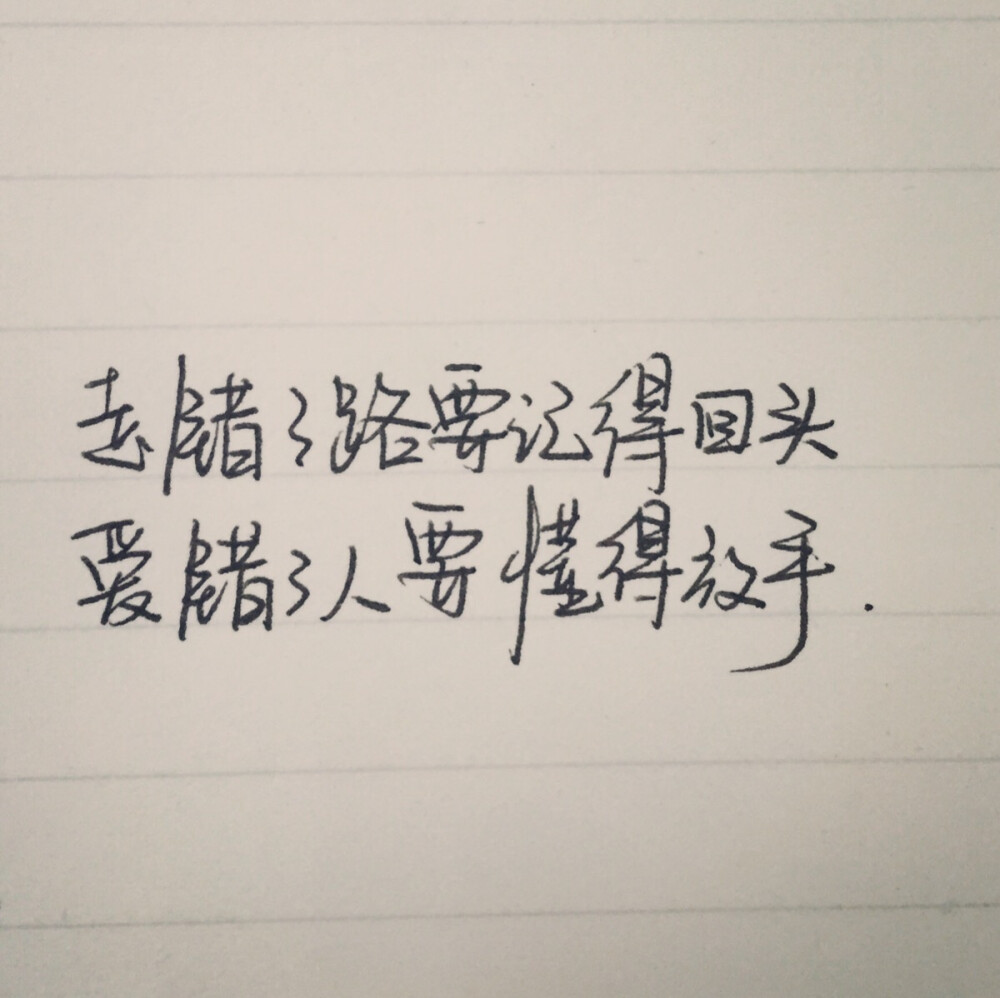 走错了路要记得回头
爱错了人要懂得放手.